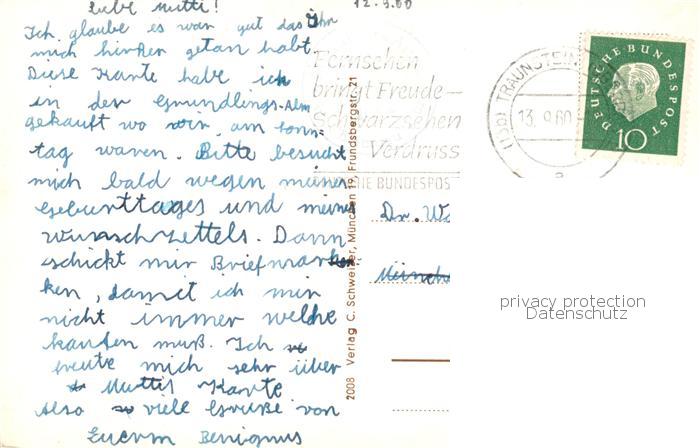 liebe Mutti!
12.9.60
Ich glaube es war gut das ihr
mich hinher getan habt.
Diese Karte habe ich
in der Gmundlings-Alm
gekauft wo wir am sonn-
tag waren. Bitte besucht
mich bald wegen meines
Geburttages und meines
Wunschzettels. Dann
schickt mir Briefmar
ken, damit ich mir
nicht immer welche
kaufen muß. Ich
freute mich sehr über
Muttis Karte
Also viele Grüße von
Euerm Benignus
Fernsehen
bringt Freude—
Schwarzsehen
Verdruss
DIE BUNDESPOS
TRAUNSTEIN
13.9.60
DEUTSCHE BUNDESPOST
10
Dr. W
Münch
2008 Verlag C. Schweiner, München 19, Frundsbergstr. 21
privacy protection
Datenschutz